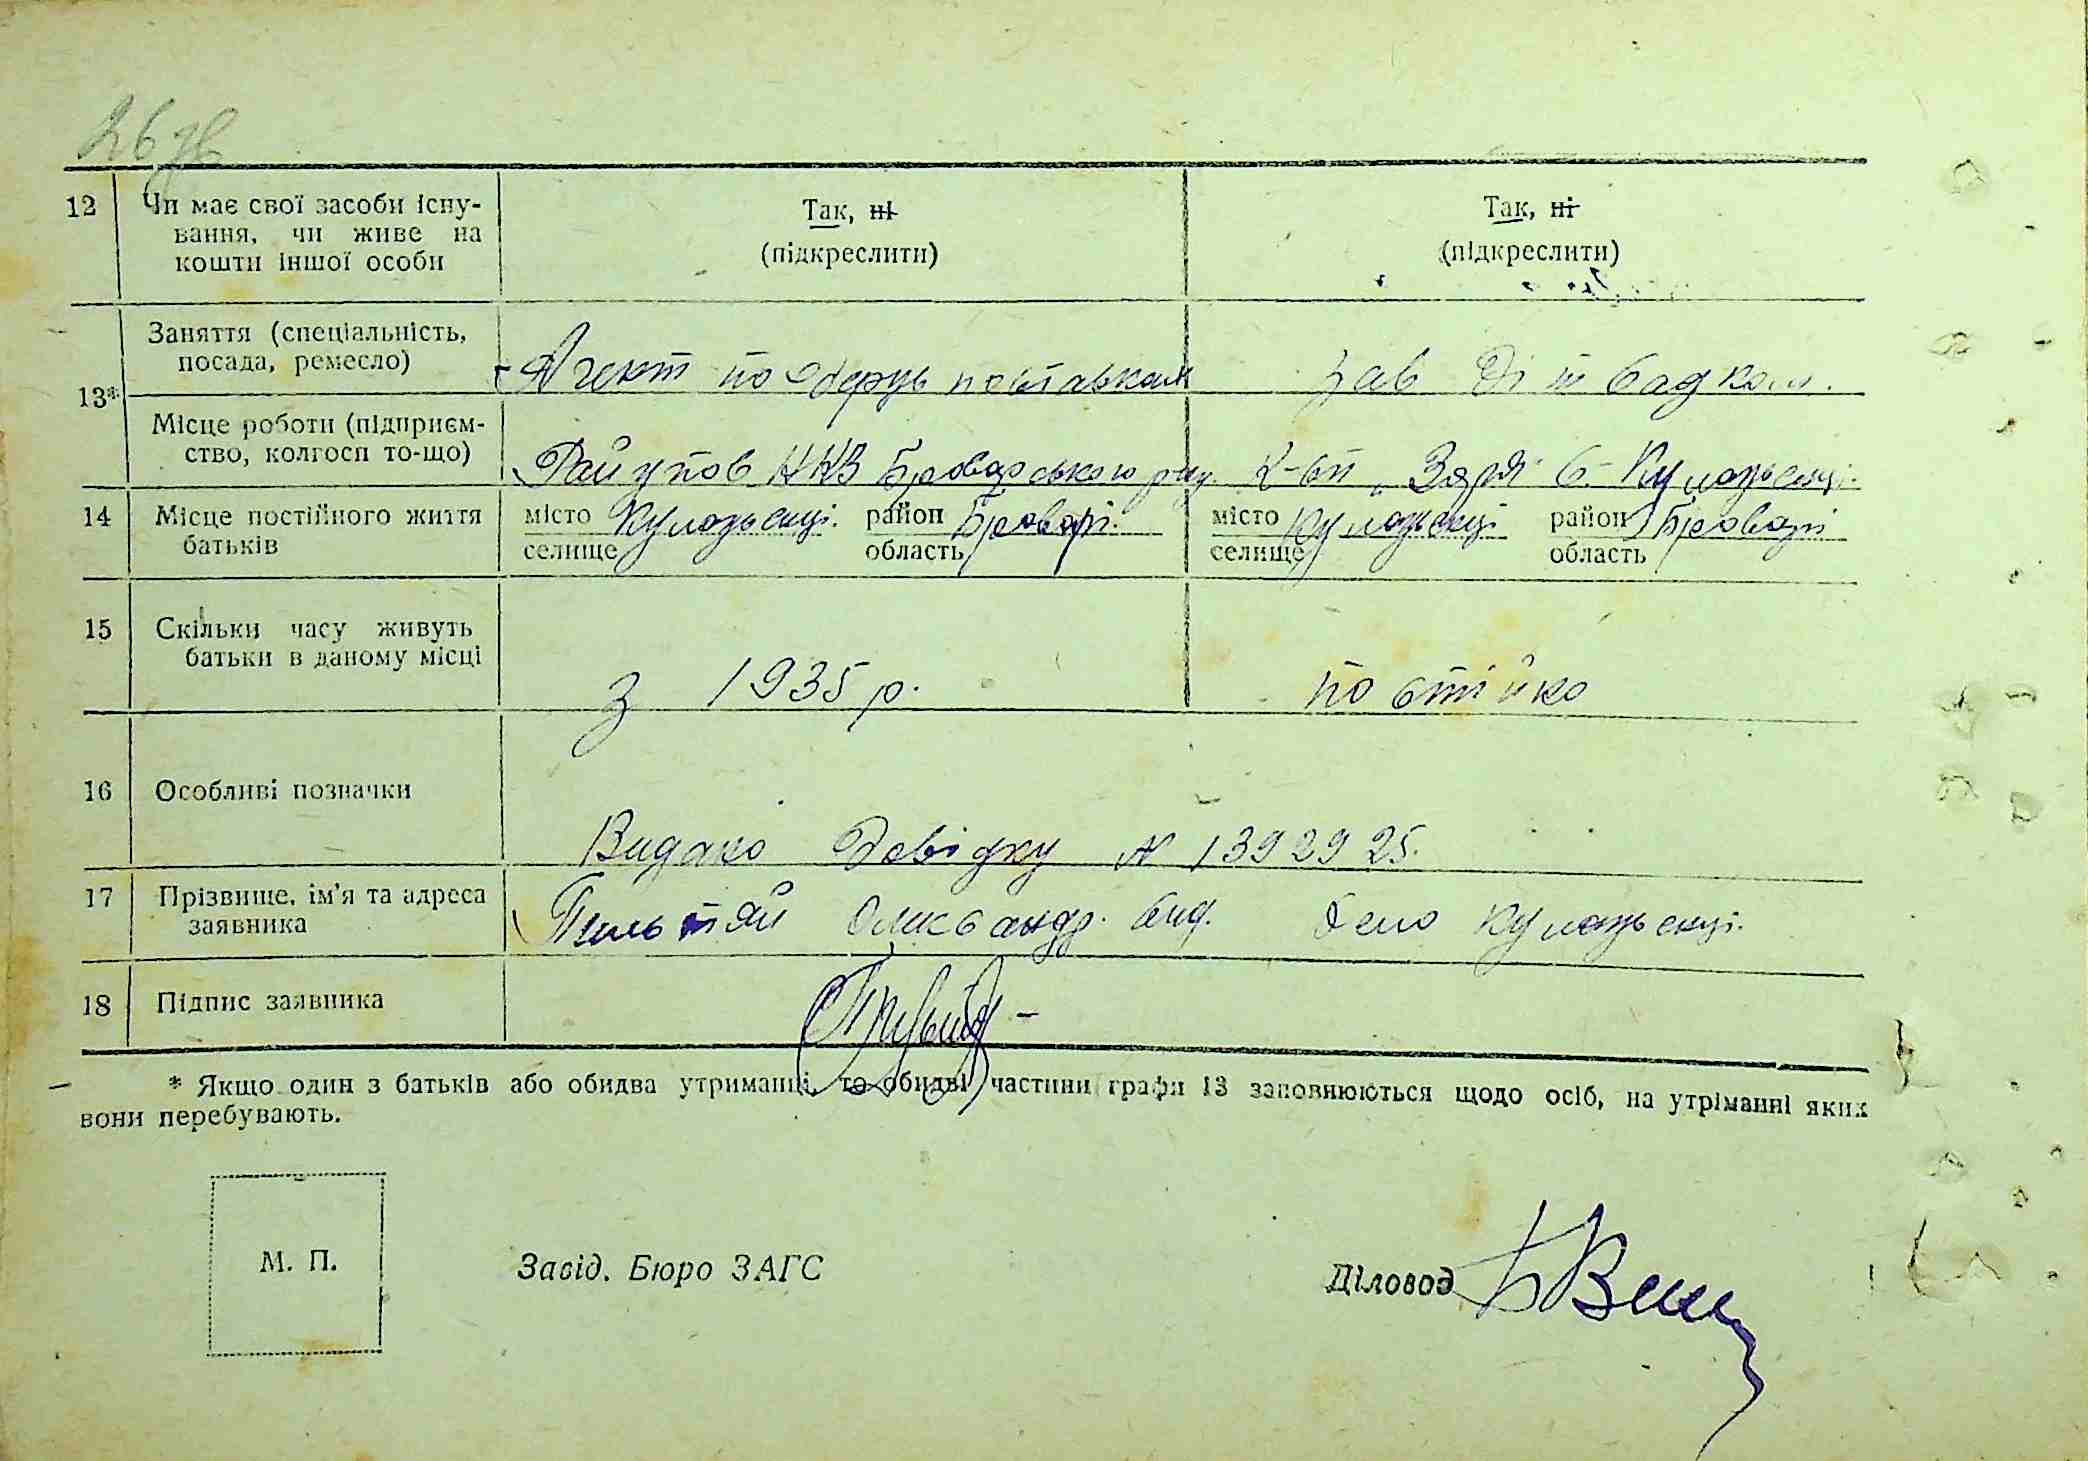 26
12 Чи має свої засоби існу-
вання, чи живе на
кошти іншої особи
Так, ні
(підкреслити)
Так, ні
(підкреслити)
13*
Заняття (спеціальність,
посада, ремесло)
Агент по поставкам
Зав Дітсадком.
Місце роботи (підприєм-
ство, колгосп то-що)
НКЗ Броварського р-ну. к-сп „Зоря" с.
14 Місце постійного життя
батьків
місто
селище
район Броварі.
область
місто
селище
район Броварі
область
15 Скільки часу живуть
батьки в даному місці
з 1935 р.
постійно
16 Особливі позначки
Видано Довідку № 1392925.
17 Прізвище, ім'я та адреса
заявника
Олександр. село
18 Підпис заявника
* Якщо один з батьків або обидва утриманці, то обидві частини графи 13 заповнюються щодо осіб, на утріманні яких
вони перебувають.
М. П.
Завід. Бюро ЗАГС
Діловод